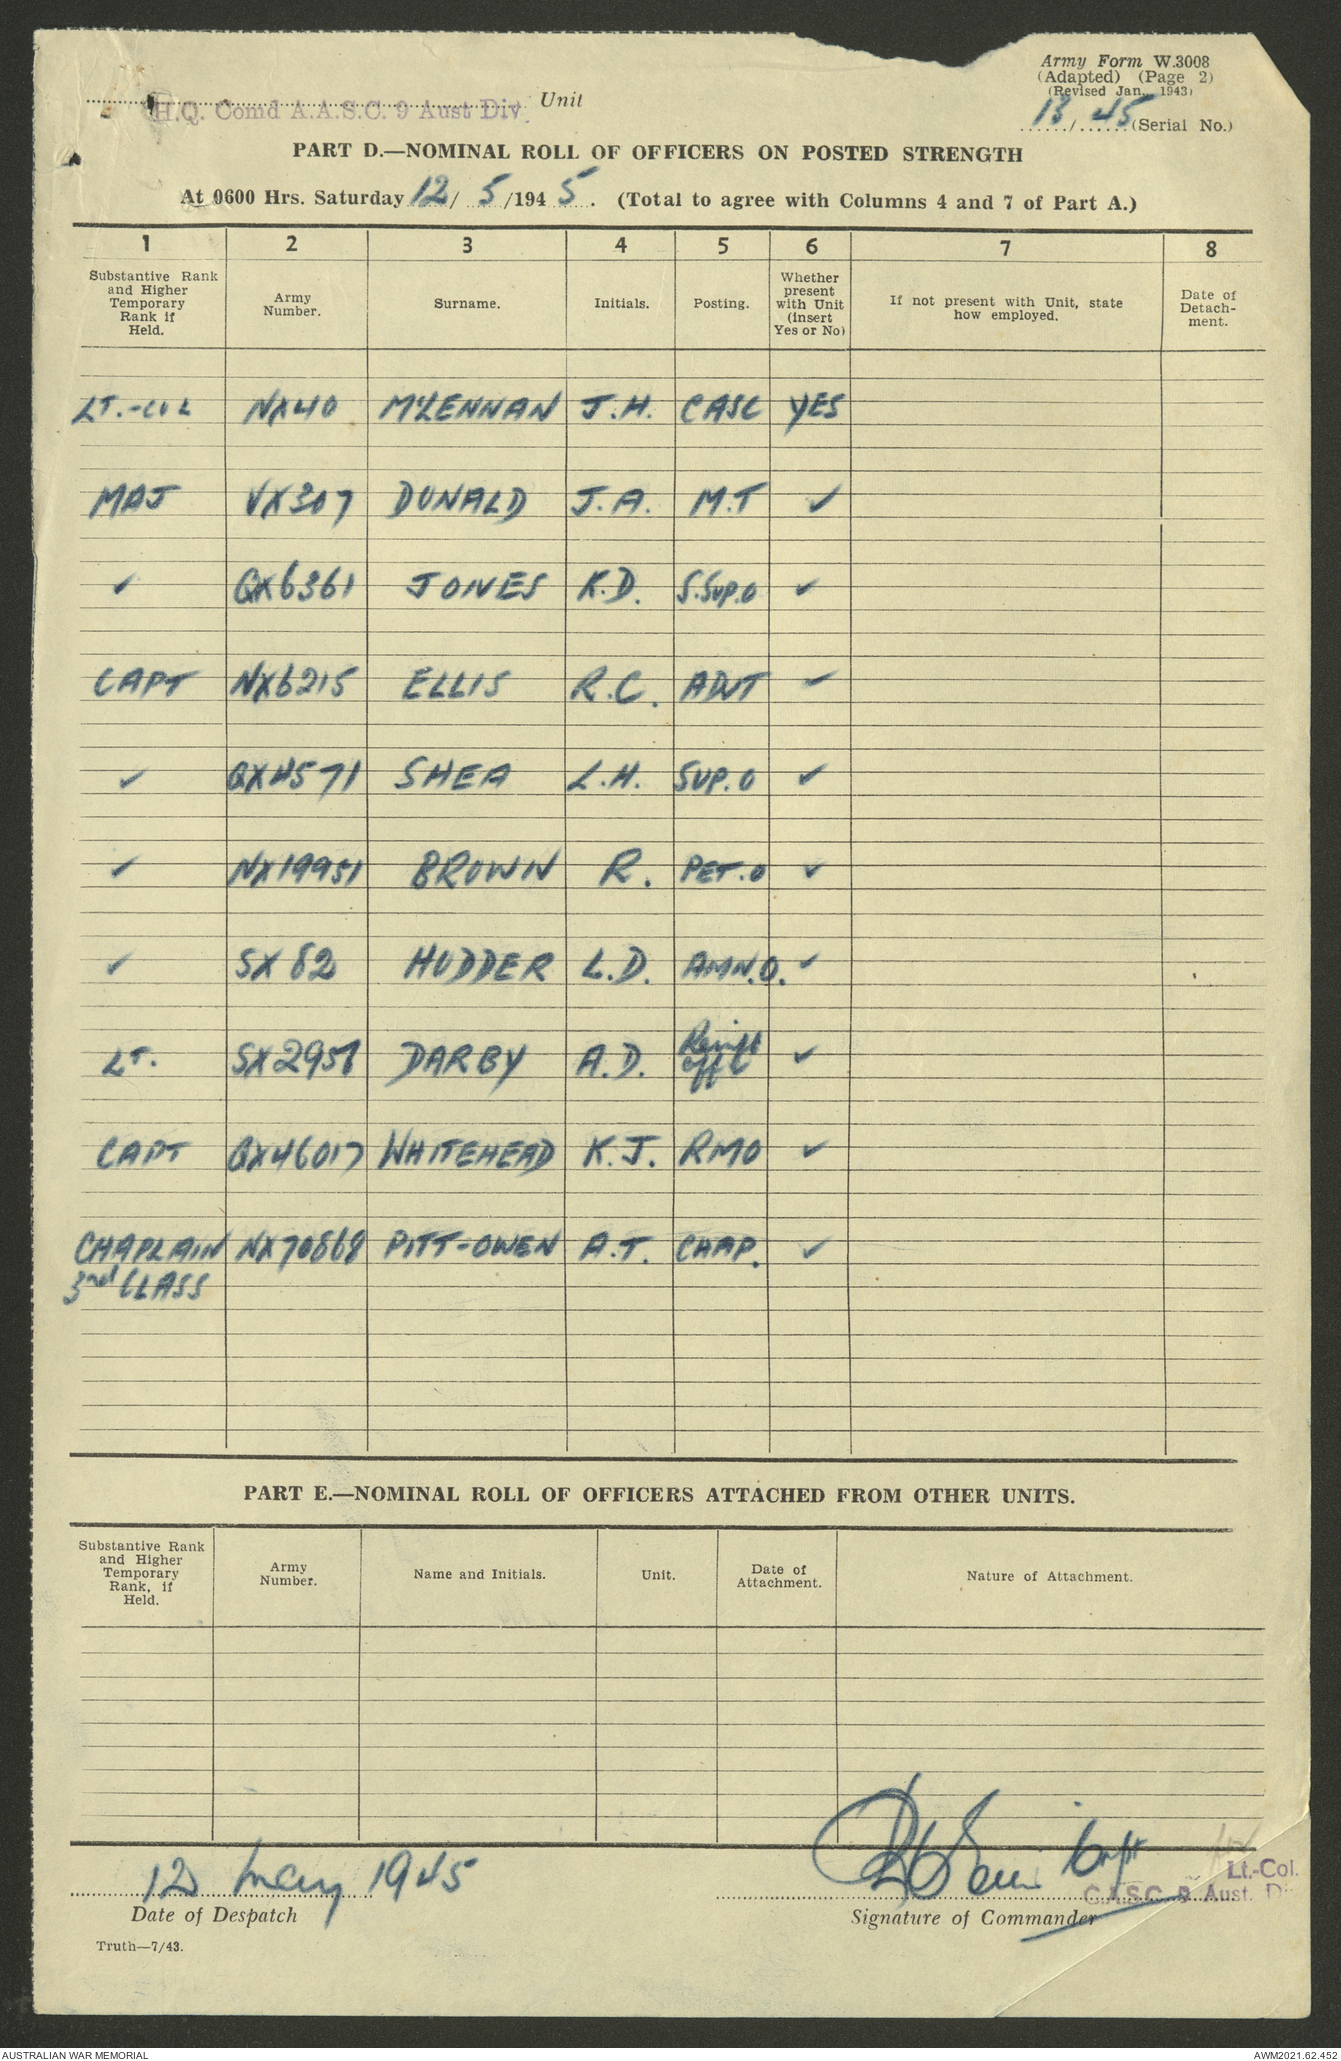 Army Form W.3008
(Adapted) (Page 2)
(Revised Jan., 1943)
H.Q. Comd A.A.S.C. 9 Aust Div. Unit
13/45 (Serial No.)
PART D.—NOMINAL ROLL OF OFFICERS ON POSTED STRENGTH
At 0600 Hrs. Saturday 12/5/1945. (Total to agree with Columns 4 and 7 of Part A.)
1 2 3 4 5 6 7 8
Substantive Rank and Higher Temporary Rank if Held. Army Number. Surname. Initials. Posting. Whether present with Unit (insert Yes or No) If not present with Unit, state how employed. Date of Detach-ment.
LT.-COL NX40 McLENNAN J.H. CASC YES
MAJ VX307 DONALD J.A. M.T ✓
✓ QX6361 JONES K.D. S.Sup.O ✓
CAPT NX6215 ELLIS R.C. ADJT ✓
✓ QX4571 SHEA L.H. SUP.O ✓
✓ NX19951 BROWN R. PET.O ✓
✓ SX82 HUDDER L.D. AMN.O. ✓
LT. DARBY A.D. Reinft ✓
CAPT QX46017 WHITEHEAD K.J. RMO ✓
CHAPLAIN NX70868 PITT-OWEN A.T. CHAP. ✓
3rd CLASS
PART E.—NOMINAL ROLL OF OFFICERS ATTACHED FROM OTHER UNITS.
Substantive Rank and Higher Temporary Rank, if Held. Army Number. Name and Initials. Unit. Date of Attachment. Nature of Attachment.
12 May 1945
Capt
Lt.-Col.
C.A.S.C. 9 Aust. Di
Date of Despatch
Signature of Commander
Truth—7/43.
AUSTRALIAN WAR MEMORIAL
AWM2021.62.452